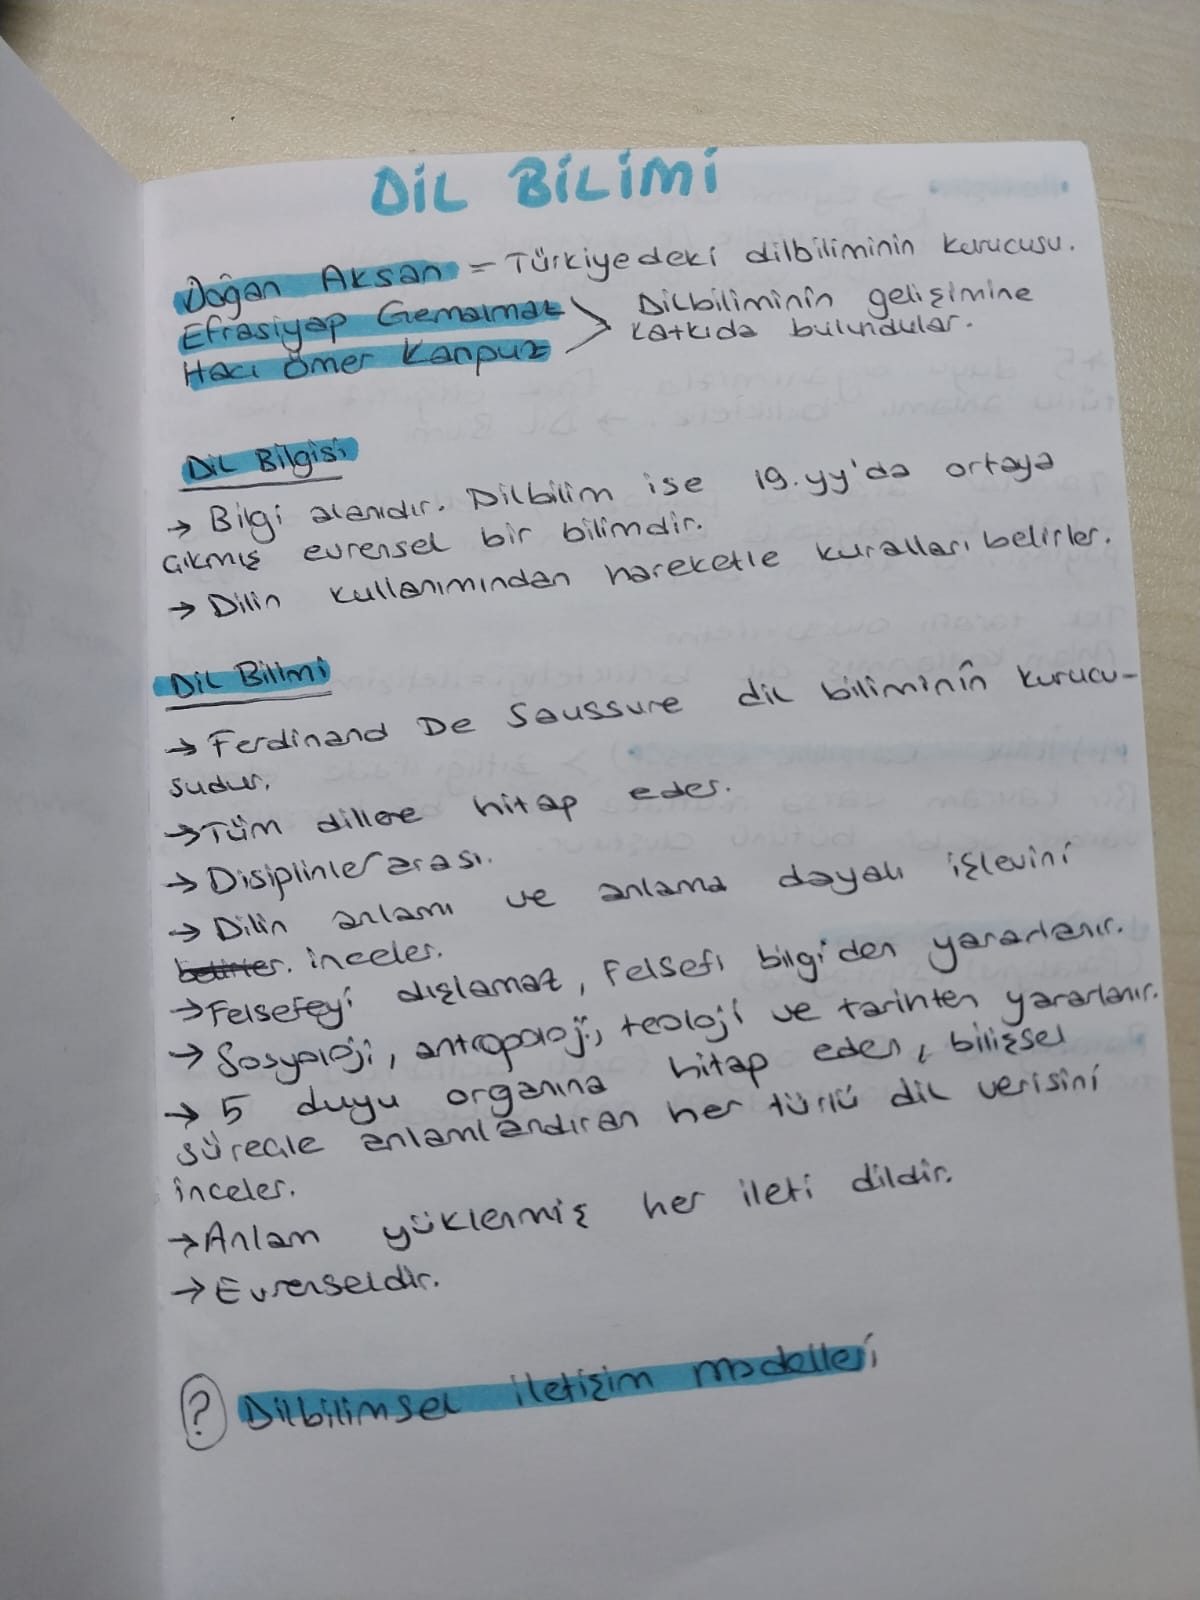 DİL BİLİMİ
Doğan Aksan = Türkiyedeki dilbiliminin kurucusu.
Efrasiyap Gemalmaz > Dilbiliminin gelişimine
Hacı Ömer Kanpuz katkıda bulundular.
Dil Bilgisi
→ Bilgi alanıdır. Dilbilim ise 19.yy'da ortaya
çıkmış evrensel bir bilimdir.
→ Dilin kullanımından hareketle kuralları belirler.
Dil Bilimi
→ Ferdinand De Saussure dil biliminin kurucu-
sudur.
→ Tüm dillere hitap eder.
→ Disiplinlerarası.
→ Dilin anlamı ve anlama dayalı işlevini
belirler. inceler.
→ Felsefeyi dışlamaz, felsefi bilgiden yararlanır.
→ Sosyoloji, antropoloji, teoloji ve tarihten yararlanır.
→ 5 duyu organına hitap eden, bilişsel
süreçle anlamlandıran her türlü dil verisini
inceler.
→ Anlam yüklenmiş her ileti dildir.
→ Evrenseldir.
? Dilbilimsel iletişim modelleri